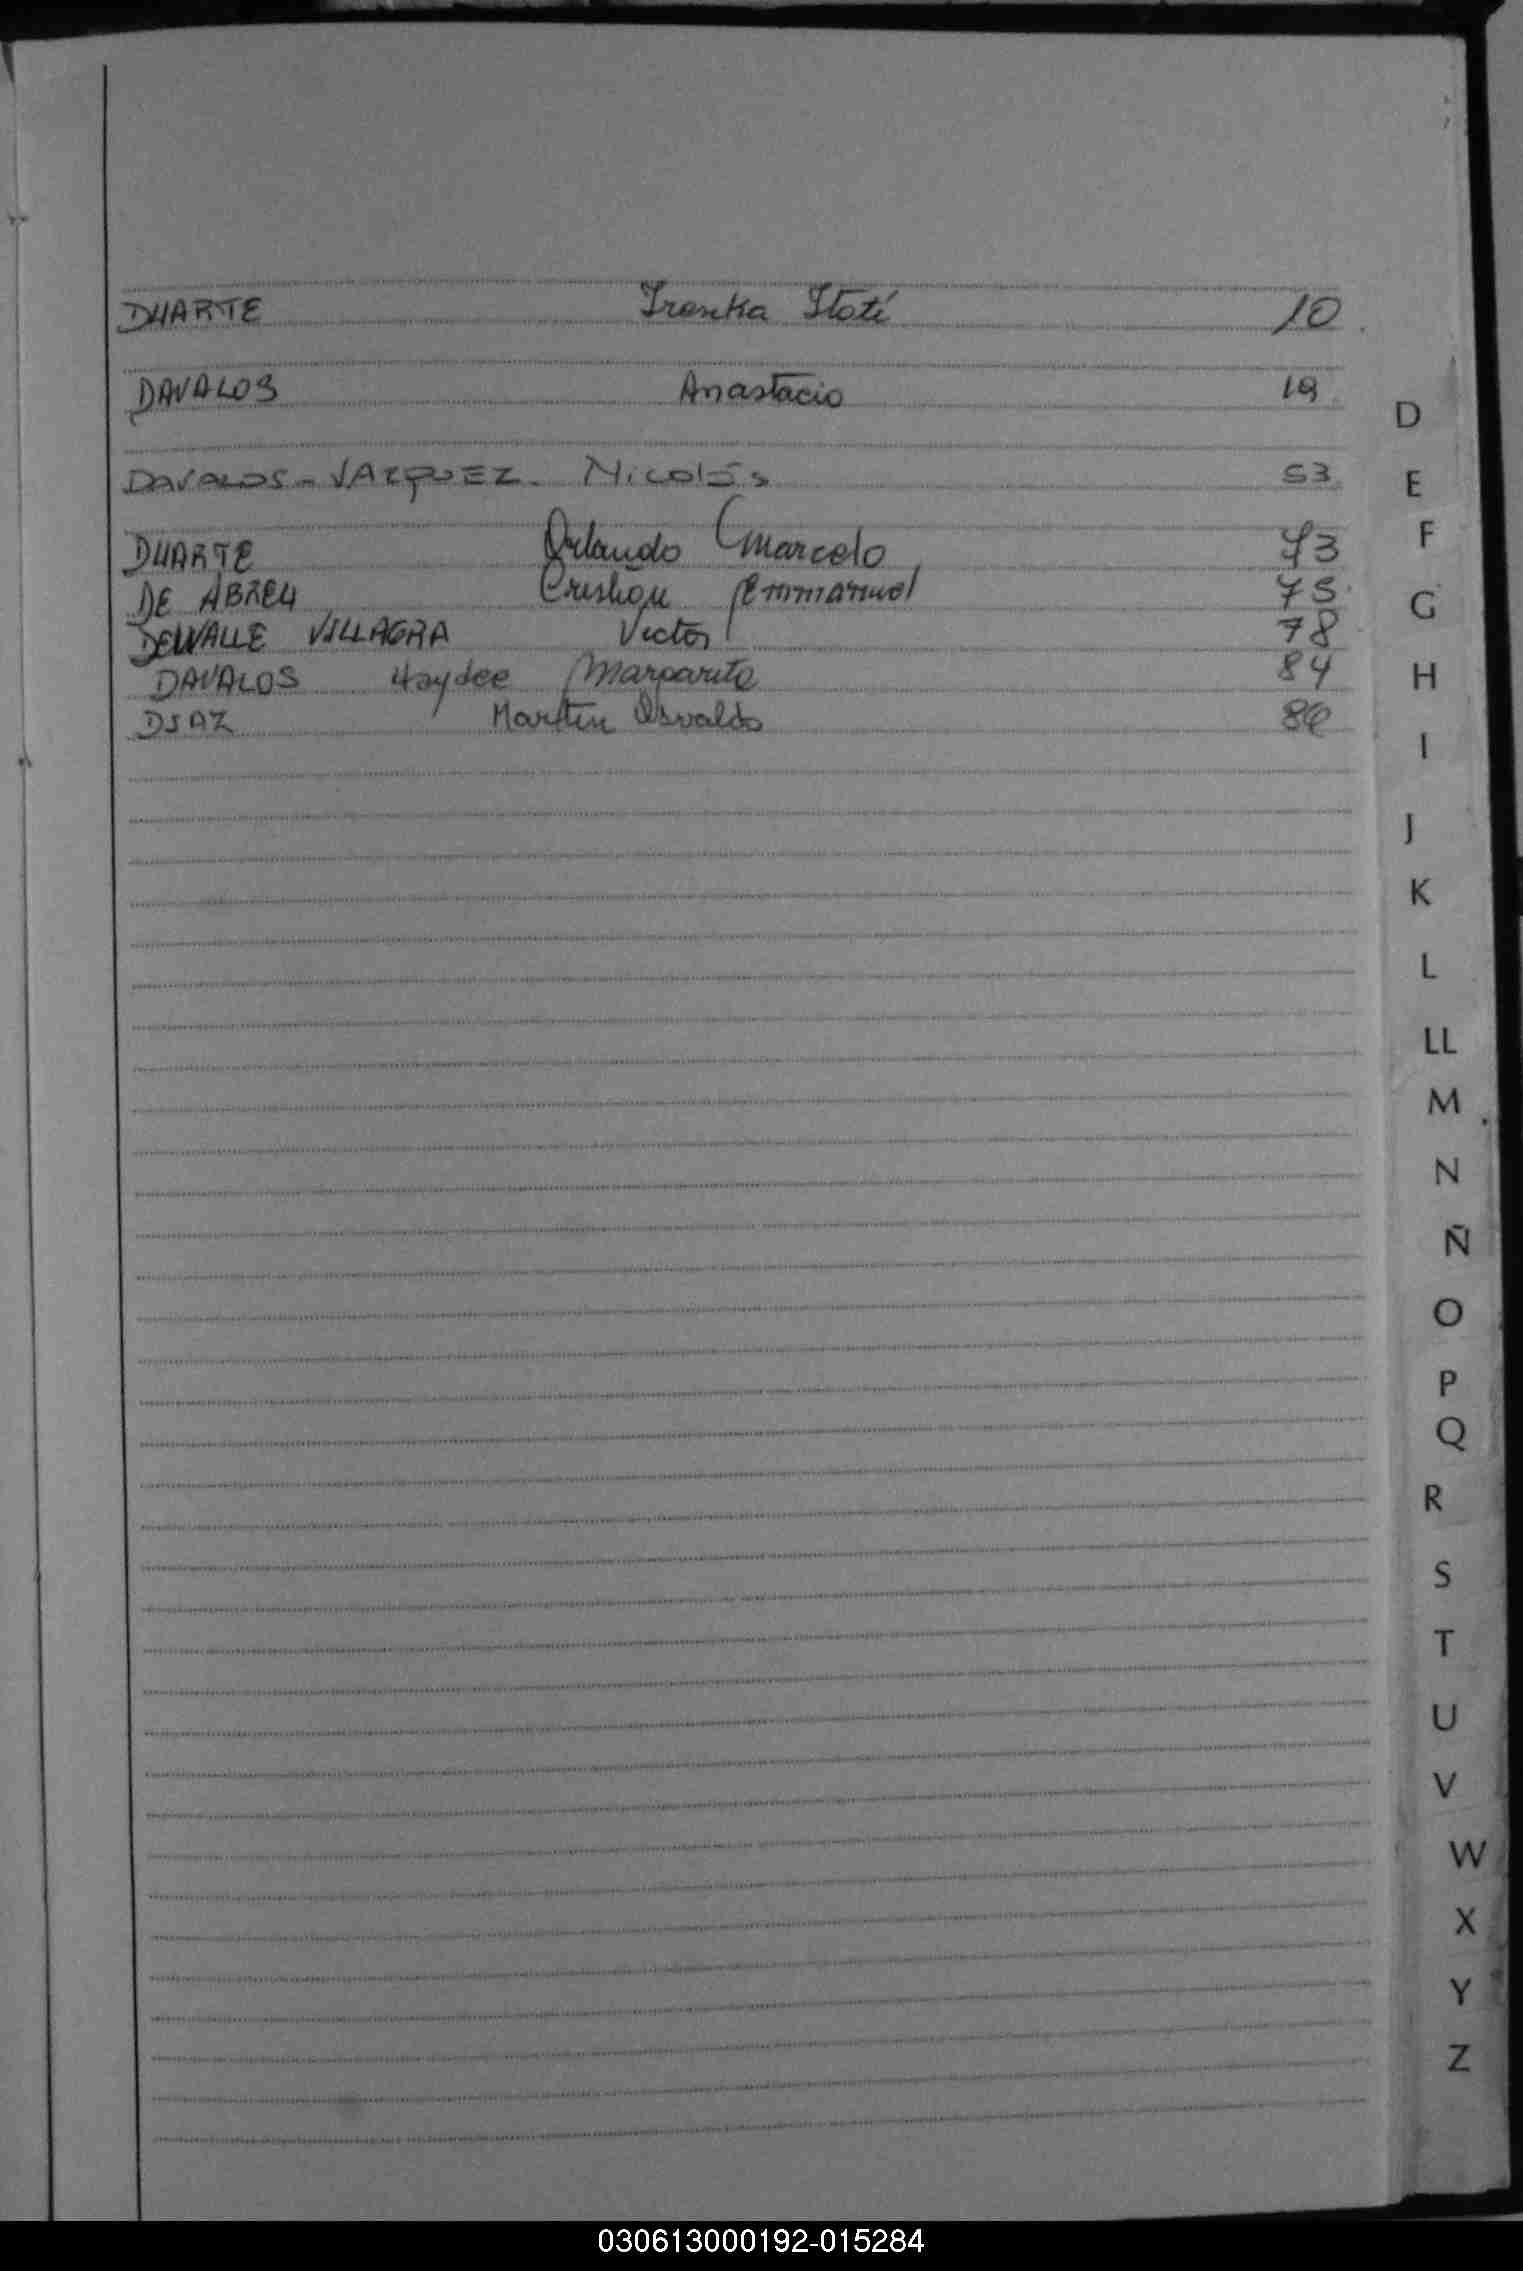 DUARTE Itatí 10.
DAVALOS Anastacio 19
DAVALOS - VAZQUEZ. Nicolás 53
DUARTE Orlando Marcelo 73
DE ABREU Cristian Emmanuel 75
DELVALLE VILLAGRA Victor 78
DAVALOS Haydee Margarita 84
DIAZ Martin Osvaldo 86
D
E
F
G
H
I
J
K
L
LL
M
N
Ñ
O
P
Q
R
S
T
U
V
W
X
Y
Z
030613000192-015284